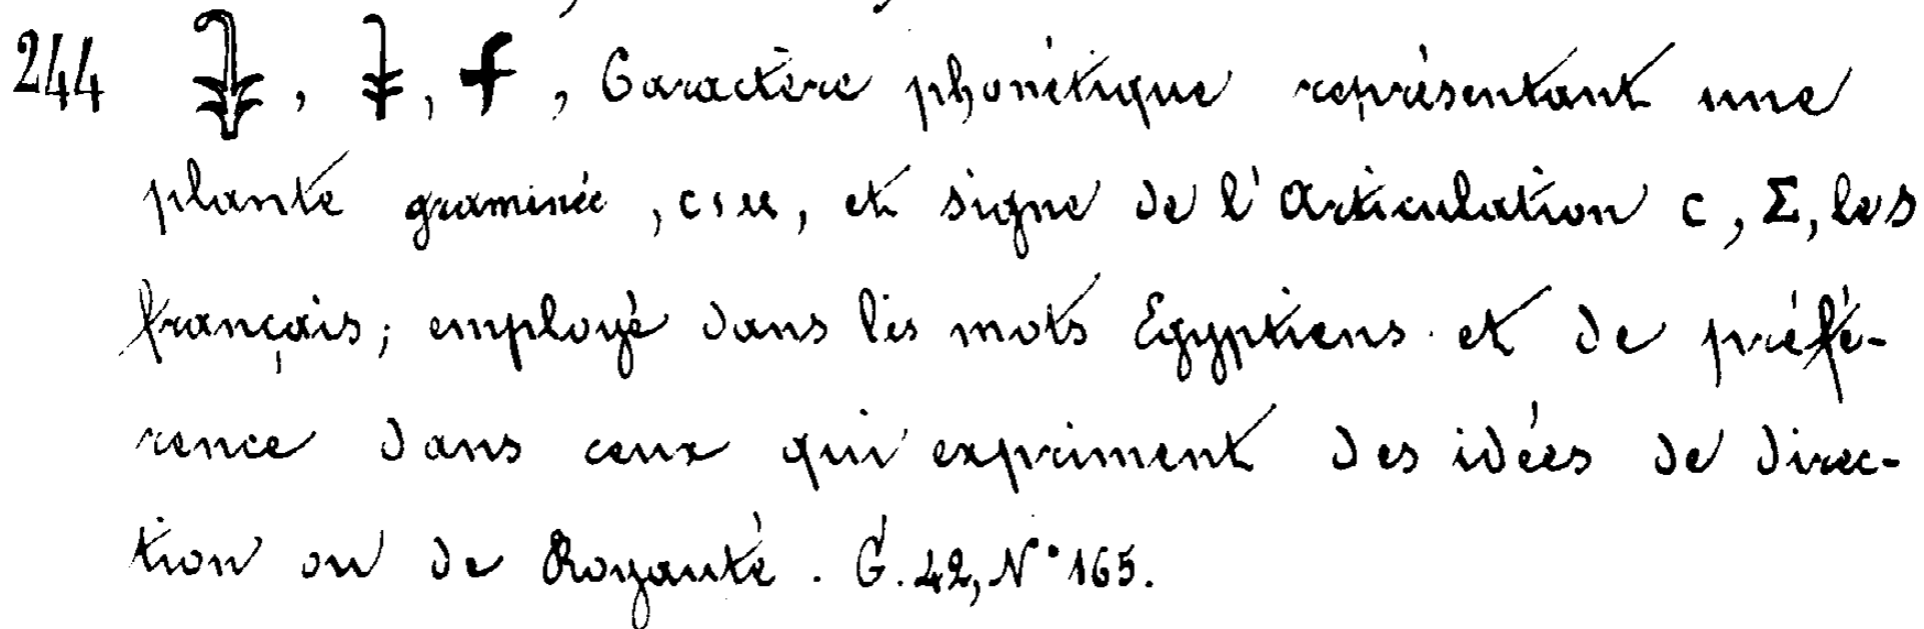 244 𓇓, 𓇓, 𓇓, Caractère phonétique représentant une
plante graminée, ⲥⲓⲙ, et signe de l'articulation ⲥ, Σ, les
français; employé dans les mots Egyptiens et de préfé-
rence dans ceux qui expriment des idées de direc-
tion ou de Royauté. G. 42, N° 165.